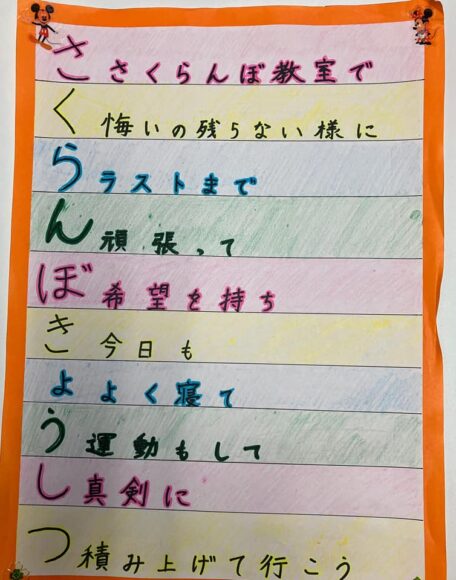 さ さくらんぼ教室で
く 悔いの残らない様に
ら ラストまで
ん 頑張って
ぼ 希望を持ち
き 今日も
よ よく寝て
う 運動もして
し 真剣に
つ 積み上げて行こう